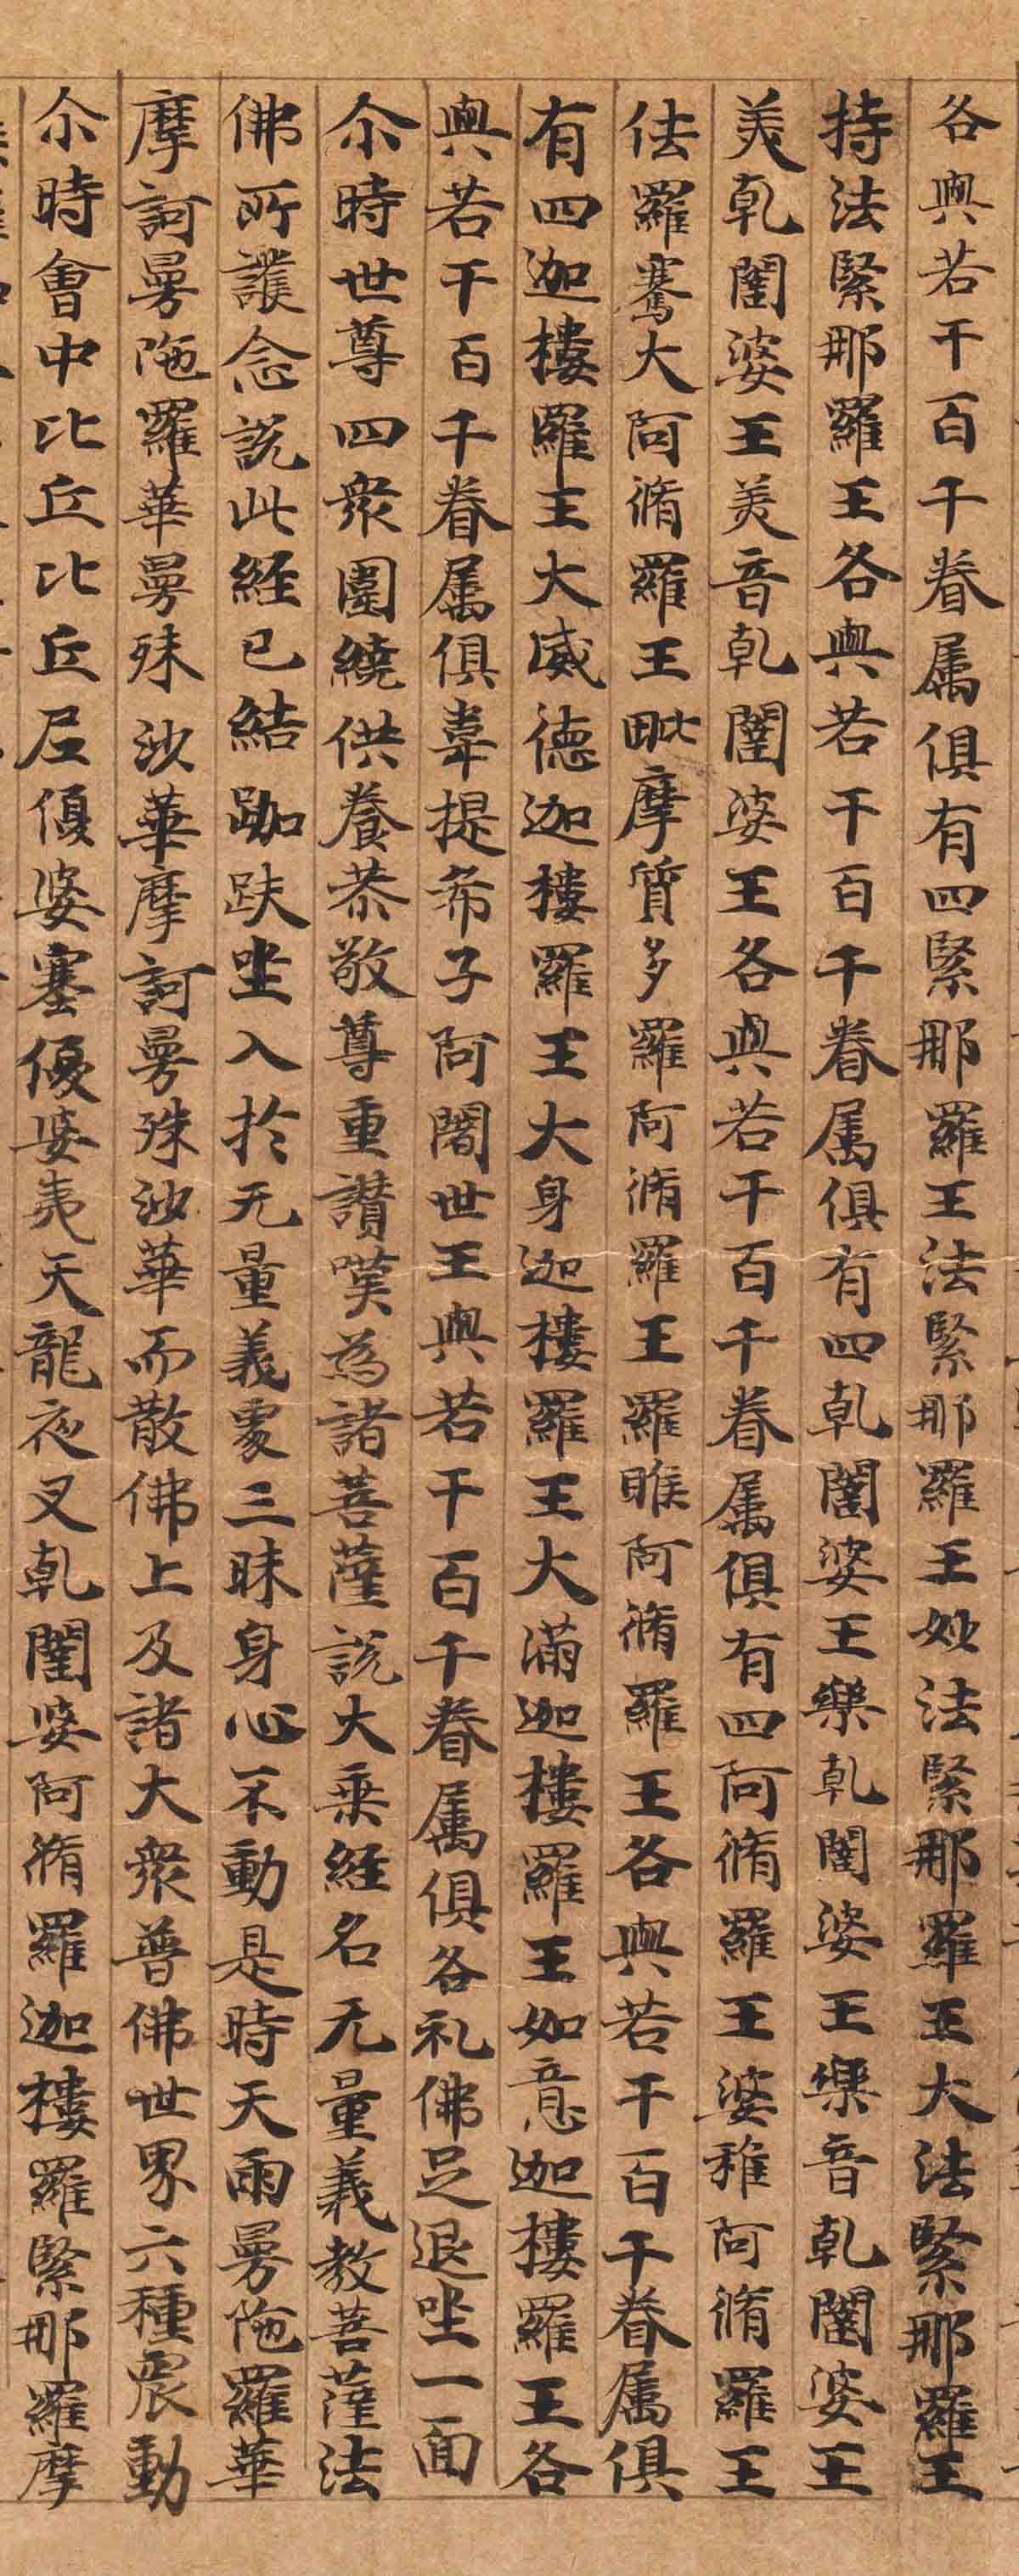 各與若干百千眷属俱有四緊那羅王法緊那羅王妙法緊那羅王大法緊那羅王
持法緊那羅王各與若干百千眷属俱有四乹闥婆王樂乹闥婆王樂音乹闥婆王
美乹闥婆王美音乹闥婆王各與若干百千眷属俱有四阿脩羅王婆稚阿脩羅王
佉羅騫大阿脩羅王毗摩質多羅阿脩羅王羅睺阿脩羅王各與若干百千眷属俱
有四迦樓羅王大威德迦樓羅王大身迦樓羅王大滿迦樓羅王如意迦樓羅王各
與若干百千眷属俱韋提希子阿闍世王與若干百千眷属俱各礼佛足退坐一面
尒時世尊四衆圍繞供養恭敬尊重讃嘆為諸菩薩說大乗經名无量義教菩薩法
佛所護念說此經已結跏趺坐入於无量義處三昧身心不動是時天雨曼陁羅華
摩訶曼陁羅華曼殊沙華摩訶曼殊沙華而散佛上及諸大衆普佛世界六種震動
尒時會中比丘比丘尼優婆塞優婆夷天龍夜叉乹闥婆阿脩羅迦樓羅緊那羅摩